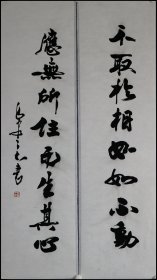 不取於相如如不動
應無所住而生其心